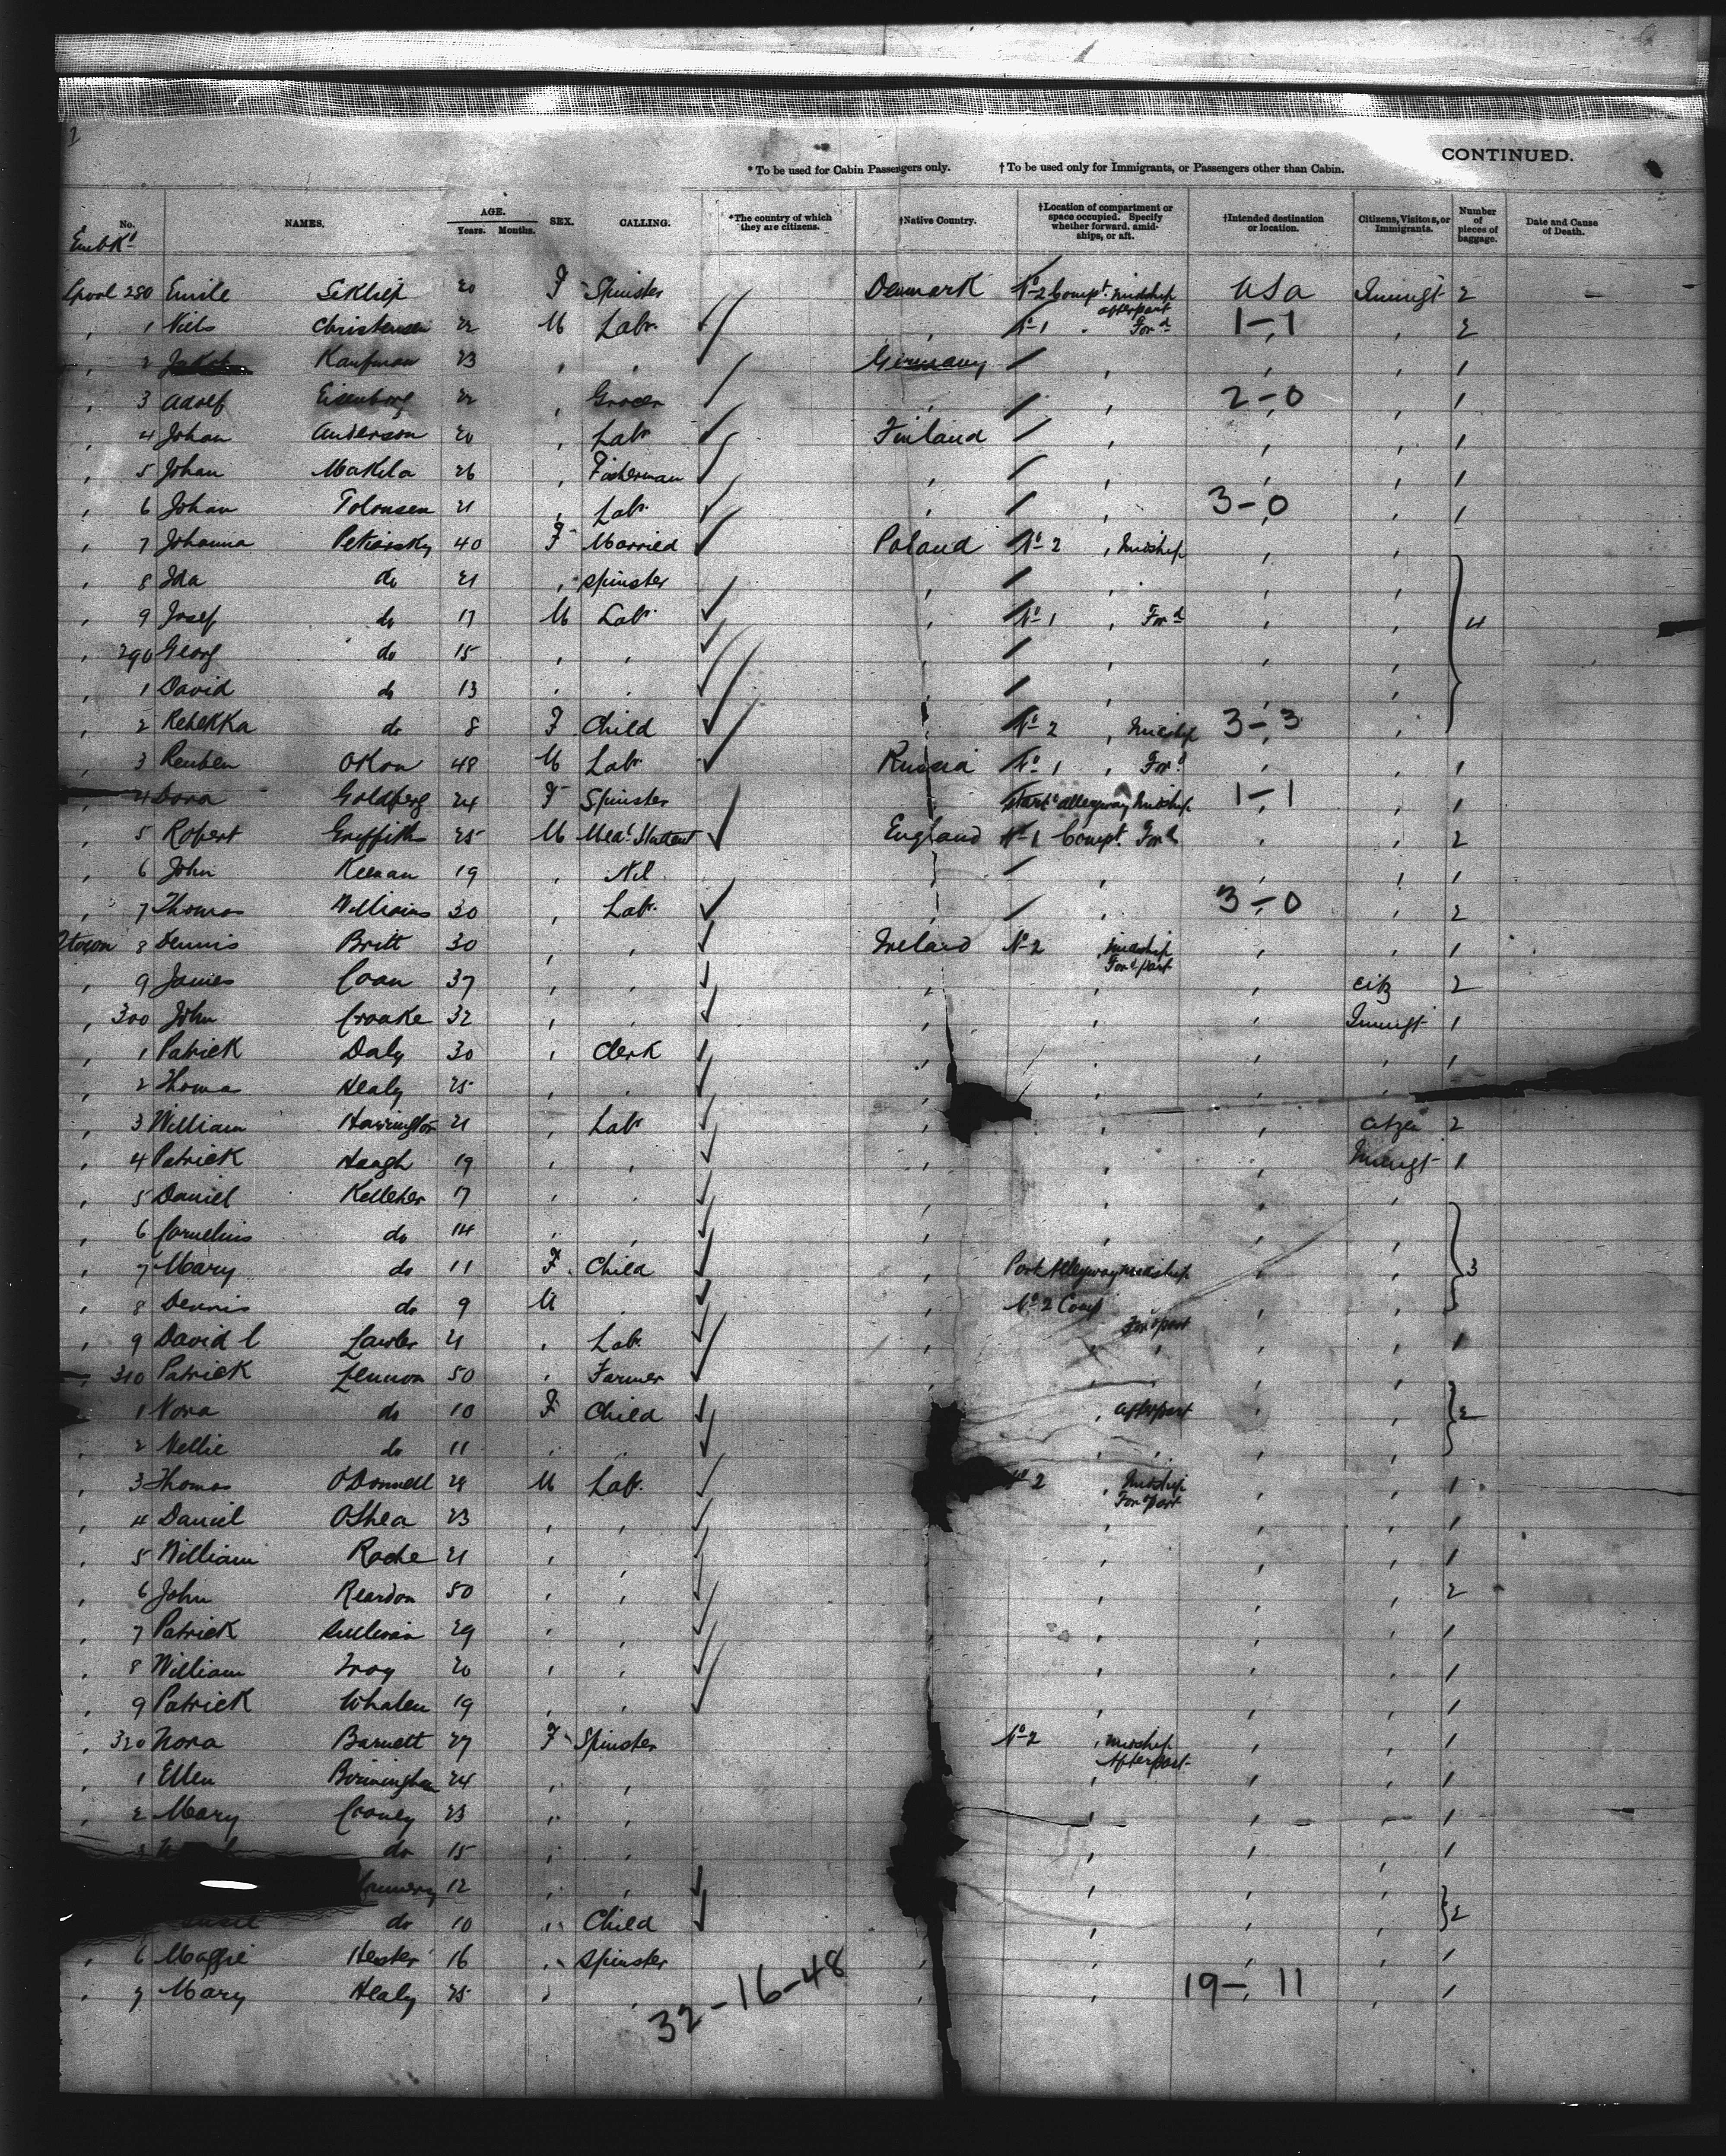 CONTINUED.
* To be used for Cabin Passengers only. † To be used only for Immigrants, or Passengers other than Cabin.
No. NAMES. AGE. Years. Months. SEX. CALLING. *The country of which they are citizens. †Native Country. †Location of compartment or space occupied. Specify whether forward, amidships, or aft. †Intended destination or location. Citizens, Visitors, or Immigrants. Number of pieces of baggage. Date and Cause of Death.
Embkd
Lpool 280 Emile 20 F Spinster Denmark No 2 Compt midship afterpart USA Immgt 2
1 Niels Christensen 22 M Labr No 1 Ford 1-1 2
2 Kaufman 23 Germany 1
3 Adolf Eisenborg 22 Grocer 2-0 1
4 Johan Anderson 20 Labr Finland 1
5 Johan Makila 26 Fisherman 1
6 Johan Tolonsen 21 Labr 3-0 1
7 Johanna 40 F Married Poland No 2 Midship
8 Ida do 21 Spinster
9 Josef do 17 M Labr No 1 Ford 4
290 Georg do 15
1 David do 13
2 Rebekka do 8 F Child No 2 Midship 3-3
3 Reuben Okon 48 M Labr Russia No 1 Ford 1
4 Dora Goldberg 24 F Spinster Starbd alleyway Midship 1-1 1
5 Robert Griffith 25 M Medl Student England No 1 Compt Ford 2
6 John Keenan 19 Nil 1
7 Thomas Williams 30 Labr 3-0 2
Qtown 8 Dennis Britt 30 Ireland No 2 midship Ford part 1
9 James Coan 37 citz 2
300 John Croake 32 Immgt 1
1 Patrick Daly 30 Clerk 1
2 Thomas Healy 25
3 William Harrington 21 Labr 2
4 Patrick Haugh 19 Immgt 1
5 Daniel Kelleher 17
6 Cornelius do 14
7 Mary do 11 F Child Port Alleyway midship 3
8 Dennis do 9 M No 2 Comp Ford part
9 David C Lawler 21 Labr 1
310 Patrick Lennon 50 Farmer
1 Nora do 10 F Child afterpart 2
2 Nellie do 11
3 Thomas O'Donnell 28 M Labr No 2 Midship Ford part 1
4 Daniel OShea 23 1
5 William Roche 21 1
6 John Reardon 50 2
7 Patrick Sullivan 29 1
8 William Troy 20 1
9 Patrick Whalen 19 1
320 Nora Barnett 27 F Spinster No 2 midship Afterpart 1
1 Ellen Birmingham 24 1
2 Mary Cooney 23 1
do 15 1
12
do 10 Child 2
6 Maggie Hester 16 Spinster 1
7 Mary Healy 25 19-11 1
32-16-48